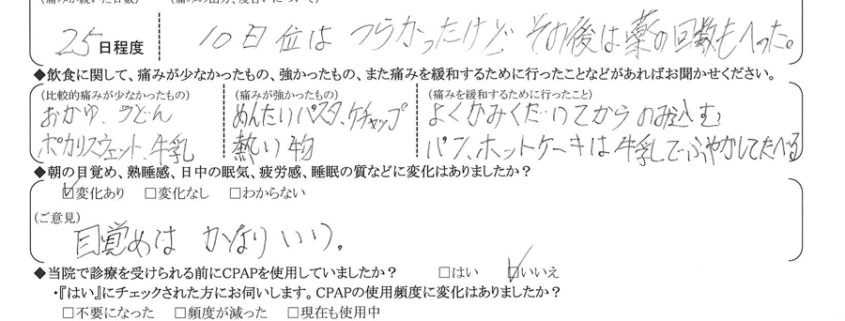 (痛みが続いた日数) (痛みの山が、度合いについて)
25 日程度 10日位は つらかったけど その後は薬の回数もへった。
◆飲食に関して、痛みが少なかったもの、強かったもの、また痛みを緩和するために行ったことなどがあればお聞かせください。
(比較的痛みが少なかったもの) (痛みが強かったもの) (痛みを緩和するために行ったこと)
おかゆ、うどん めんたいパスタ、ケチャップ よくかみくだいてから のみ込む
ポカリスウェット、牛乳 熱い物 パン、ホットケーキは牛乳でふやかしてたべる
◆朝の目覚め、熟睡感、日中の眠気、疲労感、睡眠の質などに変化はありましたか?
☑変化あり □変化なし □わからない
(ご意見)
目覚めは かなりいい。
◆当院で診療を受けられる前にCPAPを使用していましたか? □はい ☑いいえ
・『はい』にチェックされた方にお伺いします。CPAPの使用頻度に変化はありましたか?
□不要になった □頻度が減った □現在も使用中